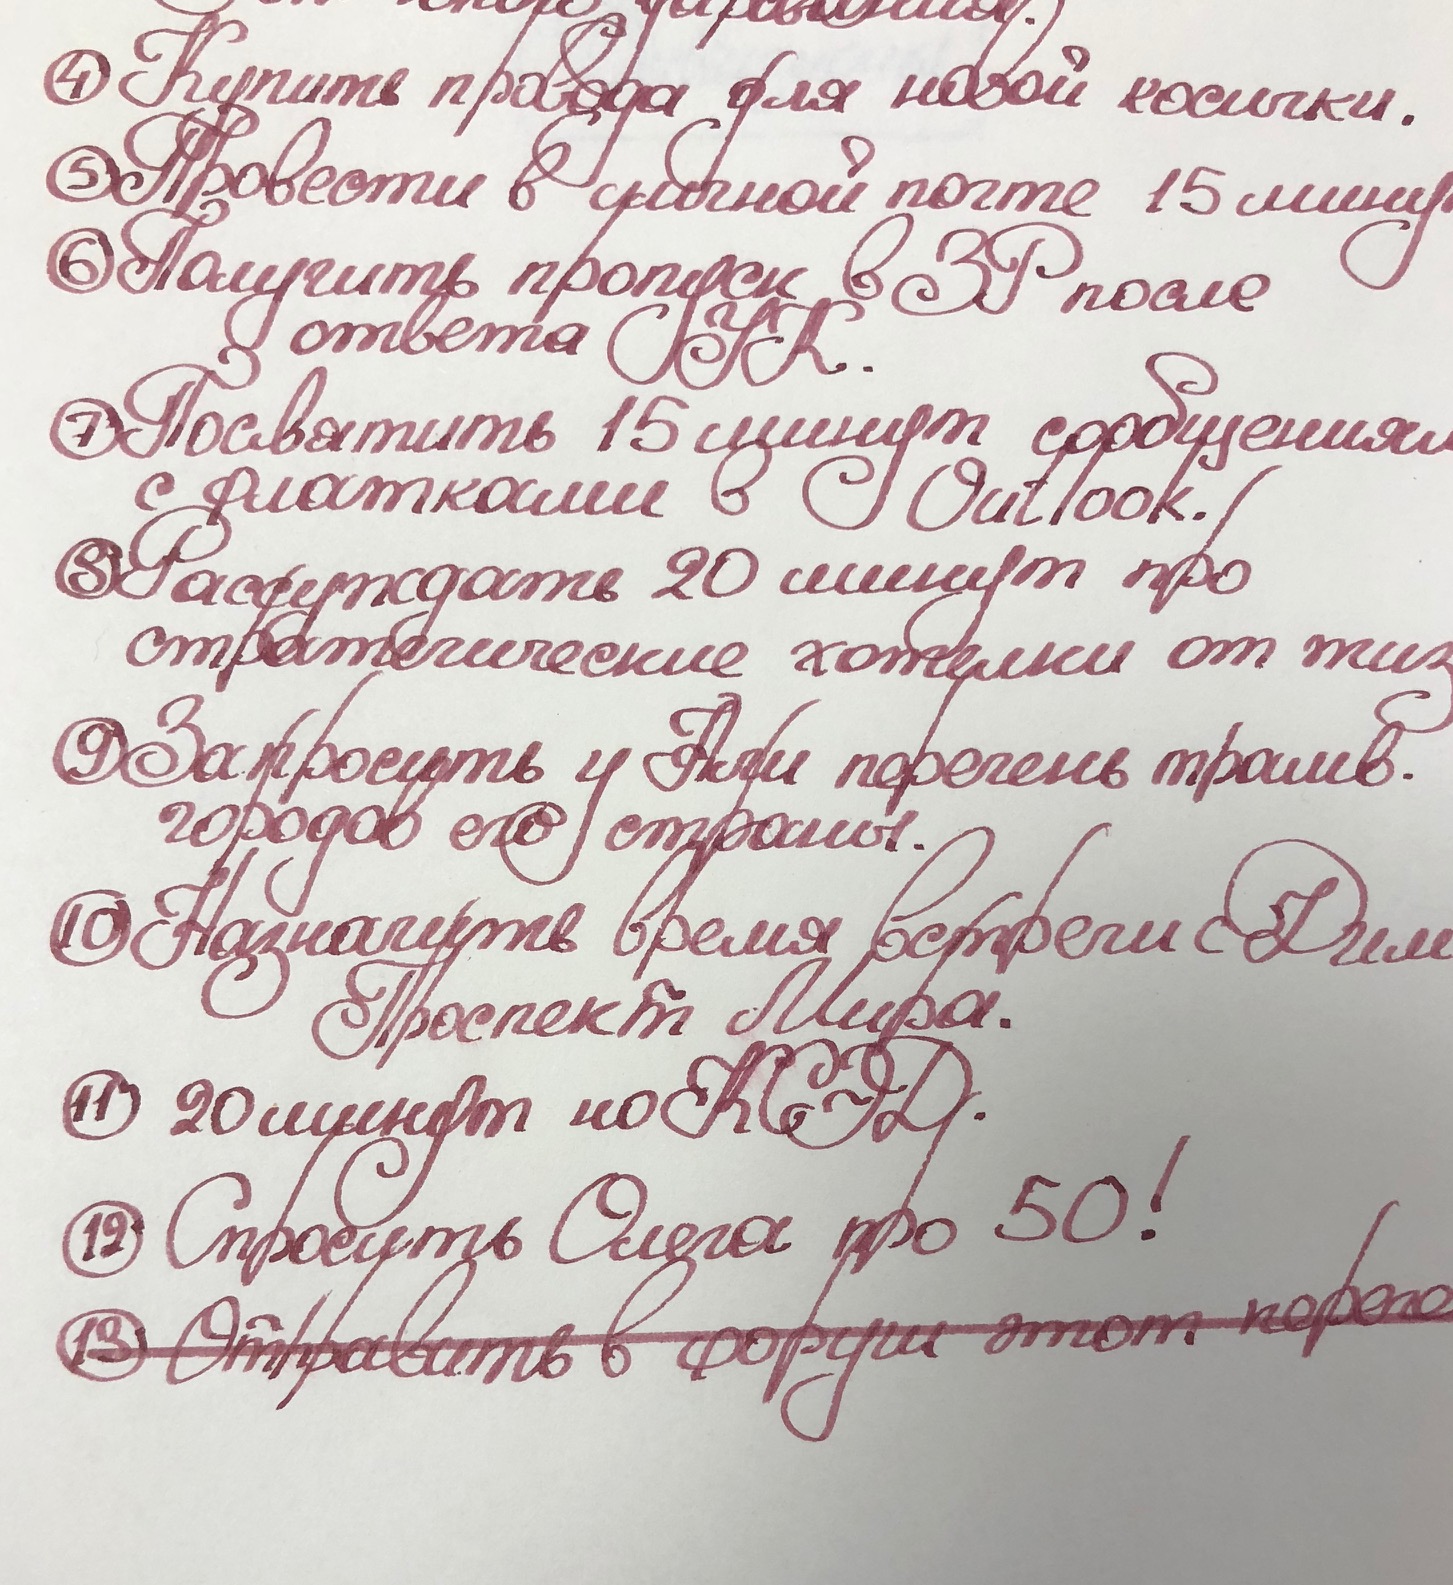 ④ Купить провода для новой косички.
⑤ Провести в личной почте 15 минут
⑥ Получить пропуск в ЗР после
ответа УК.
⑦ Посвятить 15 минут сообщениям
с флатками в Outlook.
⑧ Рассуждать 20 минут про
стратегические хотелки от
⑨ Запросить у Али перечень трамв.
городов его страны.
⑩ Назначить время встречи с Дим
Проспект Мира.
⑪ 20 минут на КСЭД.
⑫ Спросить Олега про 50!
⑬ Отправить в форум этот